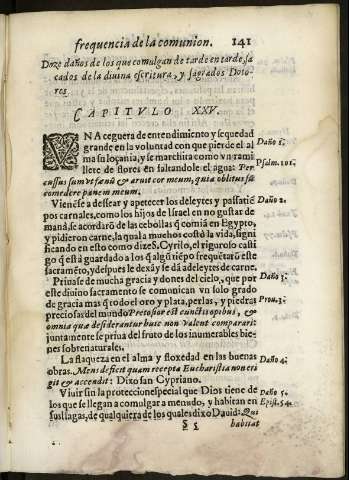 frequencia de la comunion. 141
Doze daños de los que comulgan de tarde en tarde, sa
cados de la diuina escritura, y sagrados Doto-
res.
CAPITVLO XXV.
VNA ceguera de entendimiento y sequedad
grande en la voluntad con que pierde el al
ma su loçania, y se marchita como vn rami
llete de flores en faltandole el agua: Per
cussus sum vt fænũ & aruit cor meum, quia oblitus sũ
comedere panem meum.
Daño 1.
Psalm. 101.
Vienẽse a dessear y apetecer los deleytes y passatiẽ
pos carnales, como los hijos de Israel en no gustar de
manà, se acordarõ de las cebollas q̃ comiã en Egypto,
y pidieron carne, la qual a muchos costò la vida, signi
ficando en esto como dize S. Cyrilo, el riguroso casti
go q̃ està guardado a los q̃ algũ tiẽpo frequẽtarõ este
sacramẽto, y despues le dexã y se dã a deleytes de carne.
Daño 2.
Priuase de mucha gracia y dones del cielo, que por
este diuino sacramento se comunican vn solo grado
de gracia mas q̃ todo el oro y plata, perlas, y piedras
preciosas del mundo Pretiosior est cunctis opibus, &
omnia quæ desiderantur huic non valent comparari:
juntamente se priua del fruto de los inumerables bie-
nes sobrenaturales.
Daño 3.
Prou. 3.
La flaqueza en el alma y floxedad en las buenas
obras. Mens deficit quam recepta Eucharistia non eri
git & accendit: Dixo san Cypriano.
Daño 4.
Viuir sin la proteccion especial que Dios tiene de
los que se llegan a comulgar a menudo, y habitan en
sus llagas, de qualquiera de los quales dixo Dauid: Qui
Daño 5.
Epist. 54.
§ 5 habitat